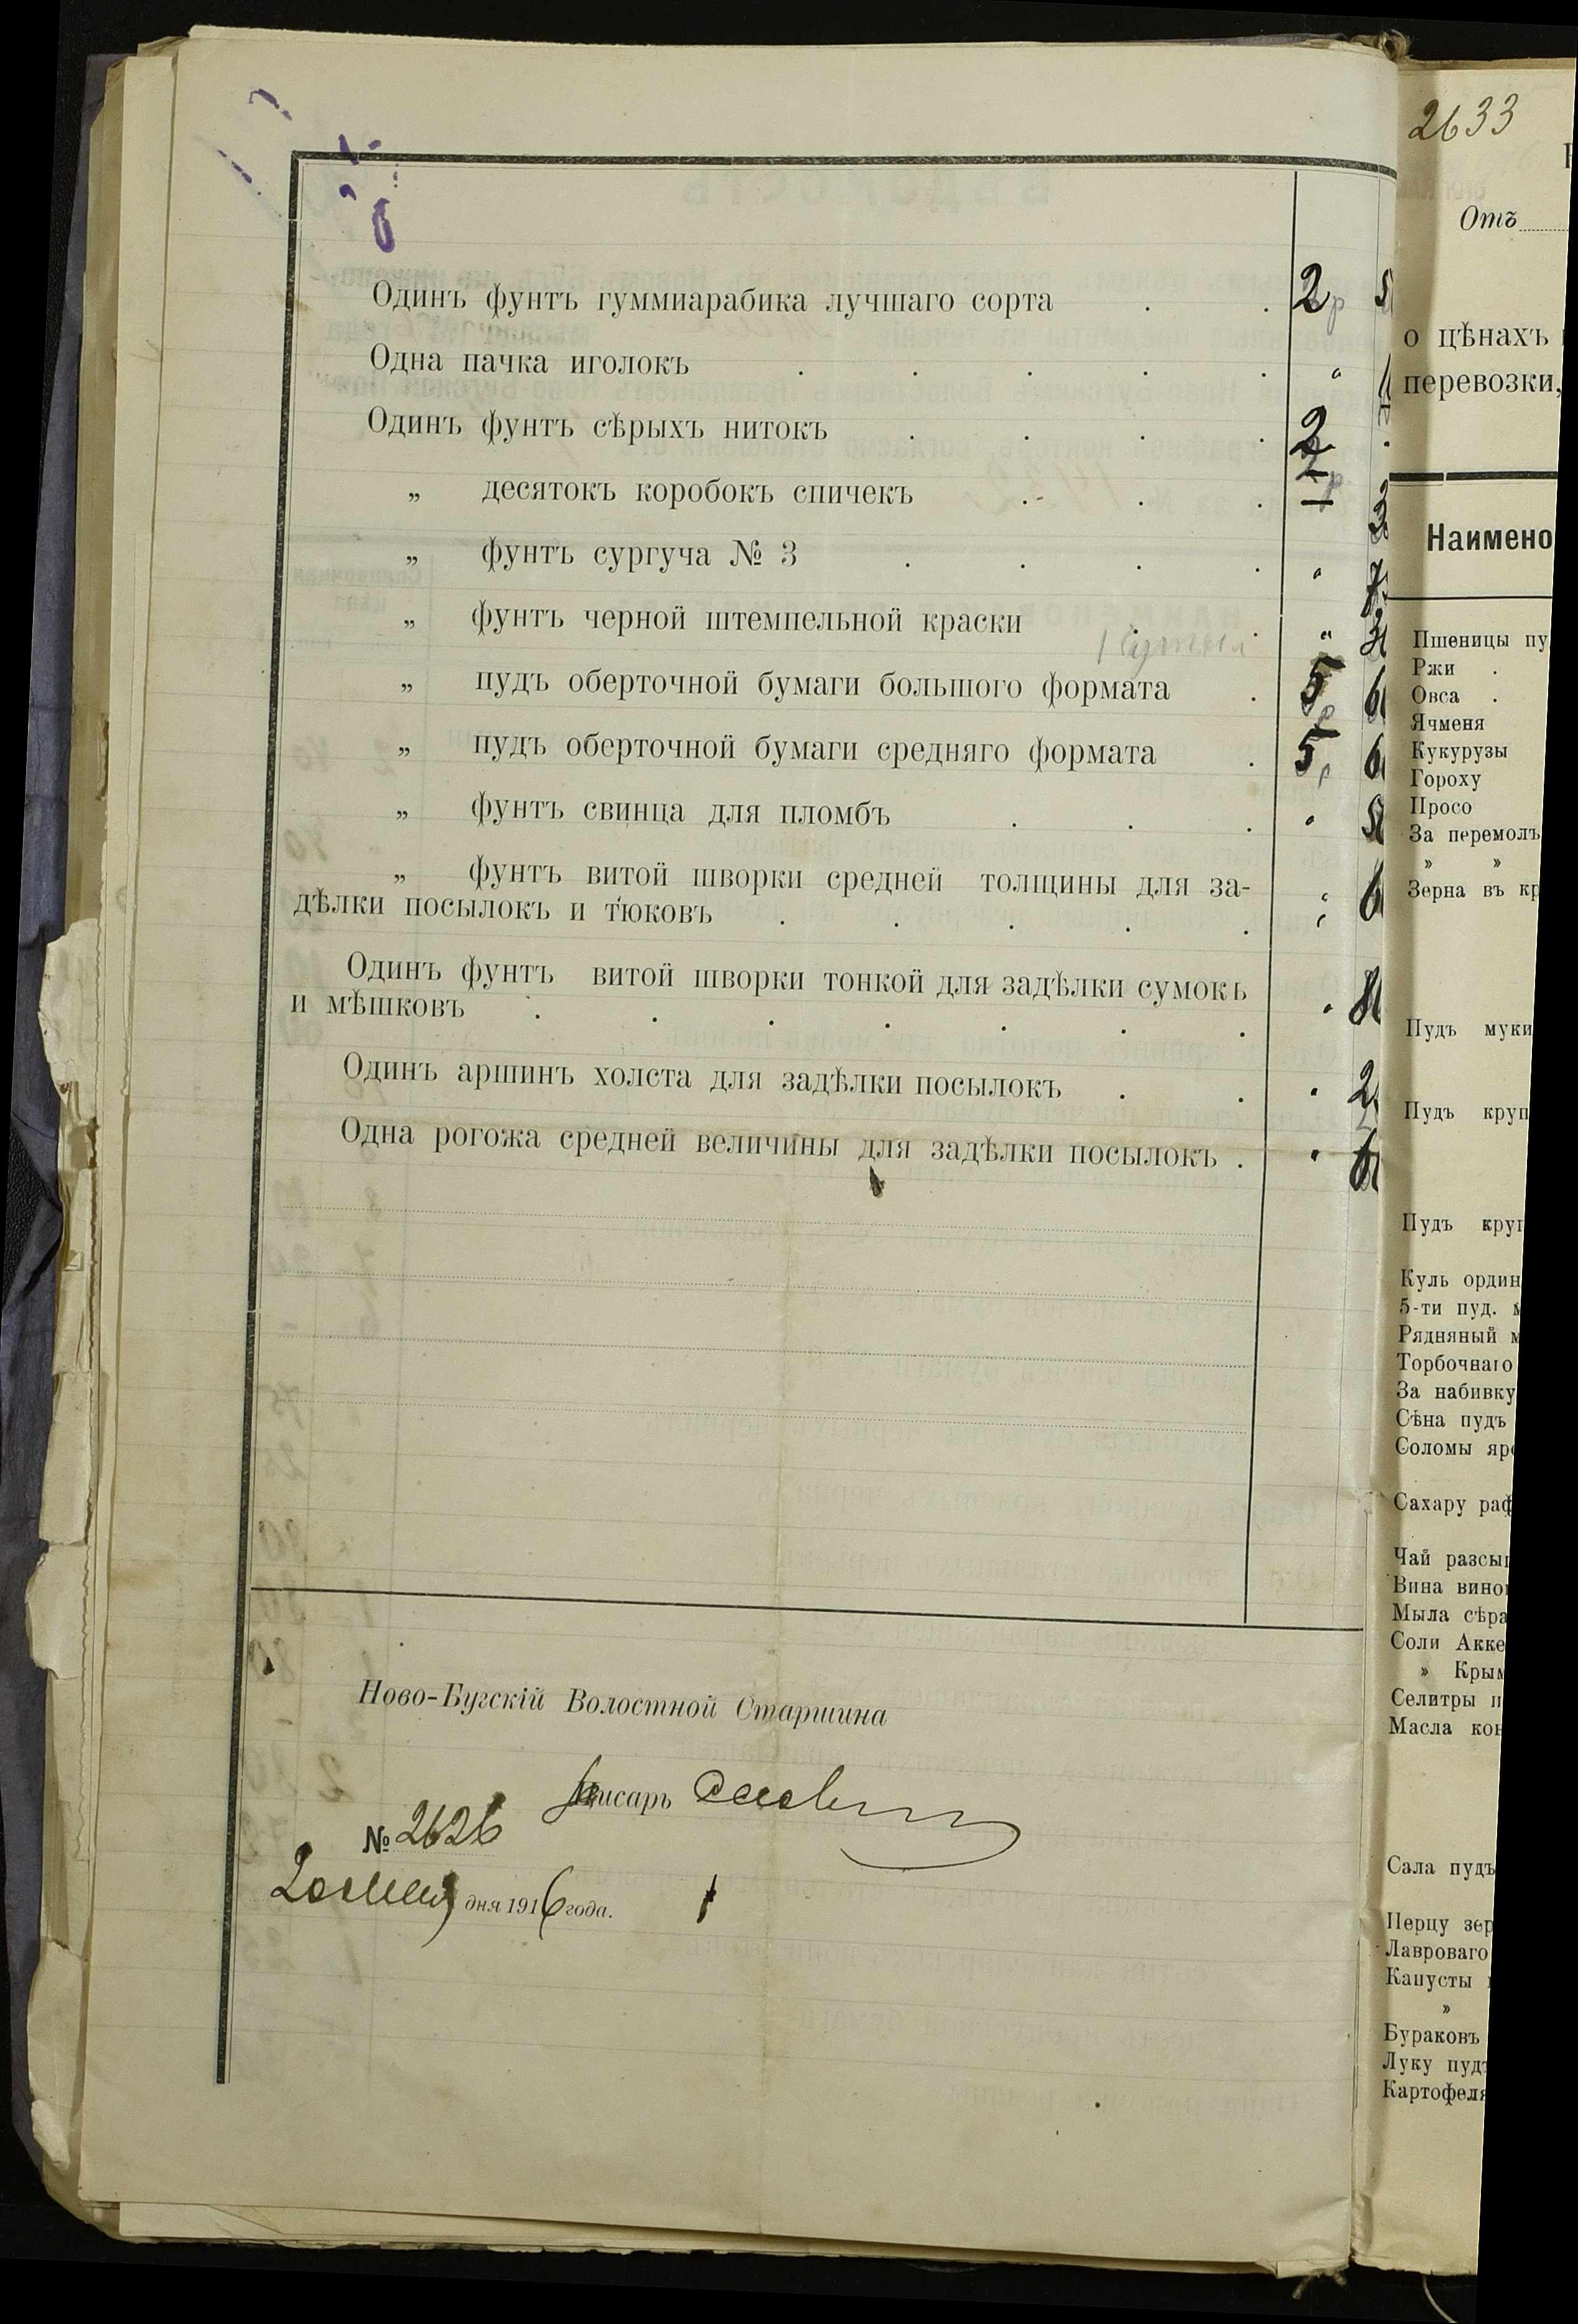 Одинъ фунтъ гуммиарабика лучшаго сорта . . 2 р
Одна пачка иголокъ . . . . . "
Одинъ фунтъ сѣрыхъ нитокъ . . . . 2
„ десятокъ коробокъ спичекъ . . .
„ фунтъ сургуча № 3 . . . . "
„ фунтъ черной штемпельной краски . . "
„ пудъ оберточной бумаги большого формата . 5 р
„ пудъ оберточной бумаги средняго формата . 5 р
„ фунтъ свинца для пломбъ . . . "
„ фунтъ витой шворки средней толщины для за-
дѣлки посылокъ и тюковъ . . . . . "
Одинъ фунтъ витой шворки тонкой для задѣлки сумокъ
и мѣшковъ . . . . . . . "
Одинъ аршинъ холста для задѣлки посылокъ . . "
Одна рогожа средней величины для задѣлки посылокъ . "
Ново-Бугскій Волостной Старшина
Писарь
№ 2626
20 Мая дня 1916 года.
2633
Отъ
о цѣнахъ
перевозки,
Наимено
Пшеницы пу
Ржи .
Овса .
Ячменя
Кукурузы
Гороху
Просо
За перемолъ
» »
Зерна въ кр
Пудъ муки
Пудъ круп
Пудъ круп
Куль ордин
5-ти пуд. м
Рядняный м
Торбочнаго
За набивку
Сѣна пудъ
Соломы яро
Сахару раф
Чай разсып
Вина вино
Мыла сѣра
Соли Акке
» Крым
Селитры п
Масла кон
Сала пудъ
Перцу зер
Лавроваго
Капусты
»
Бураковъ
Луку пудъ
Картофеля